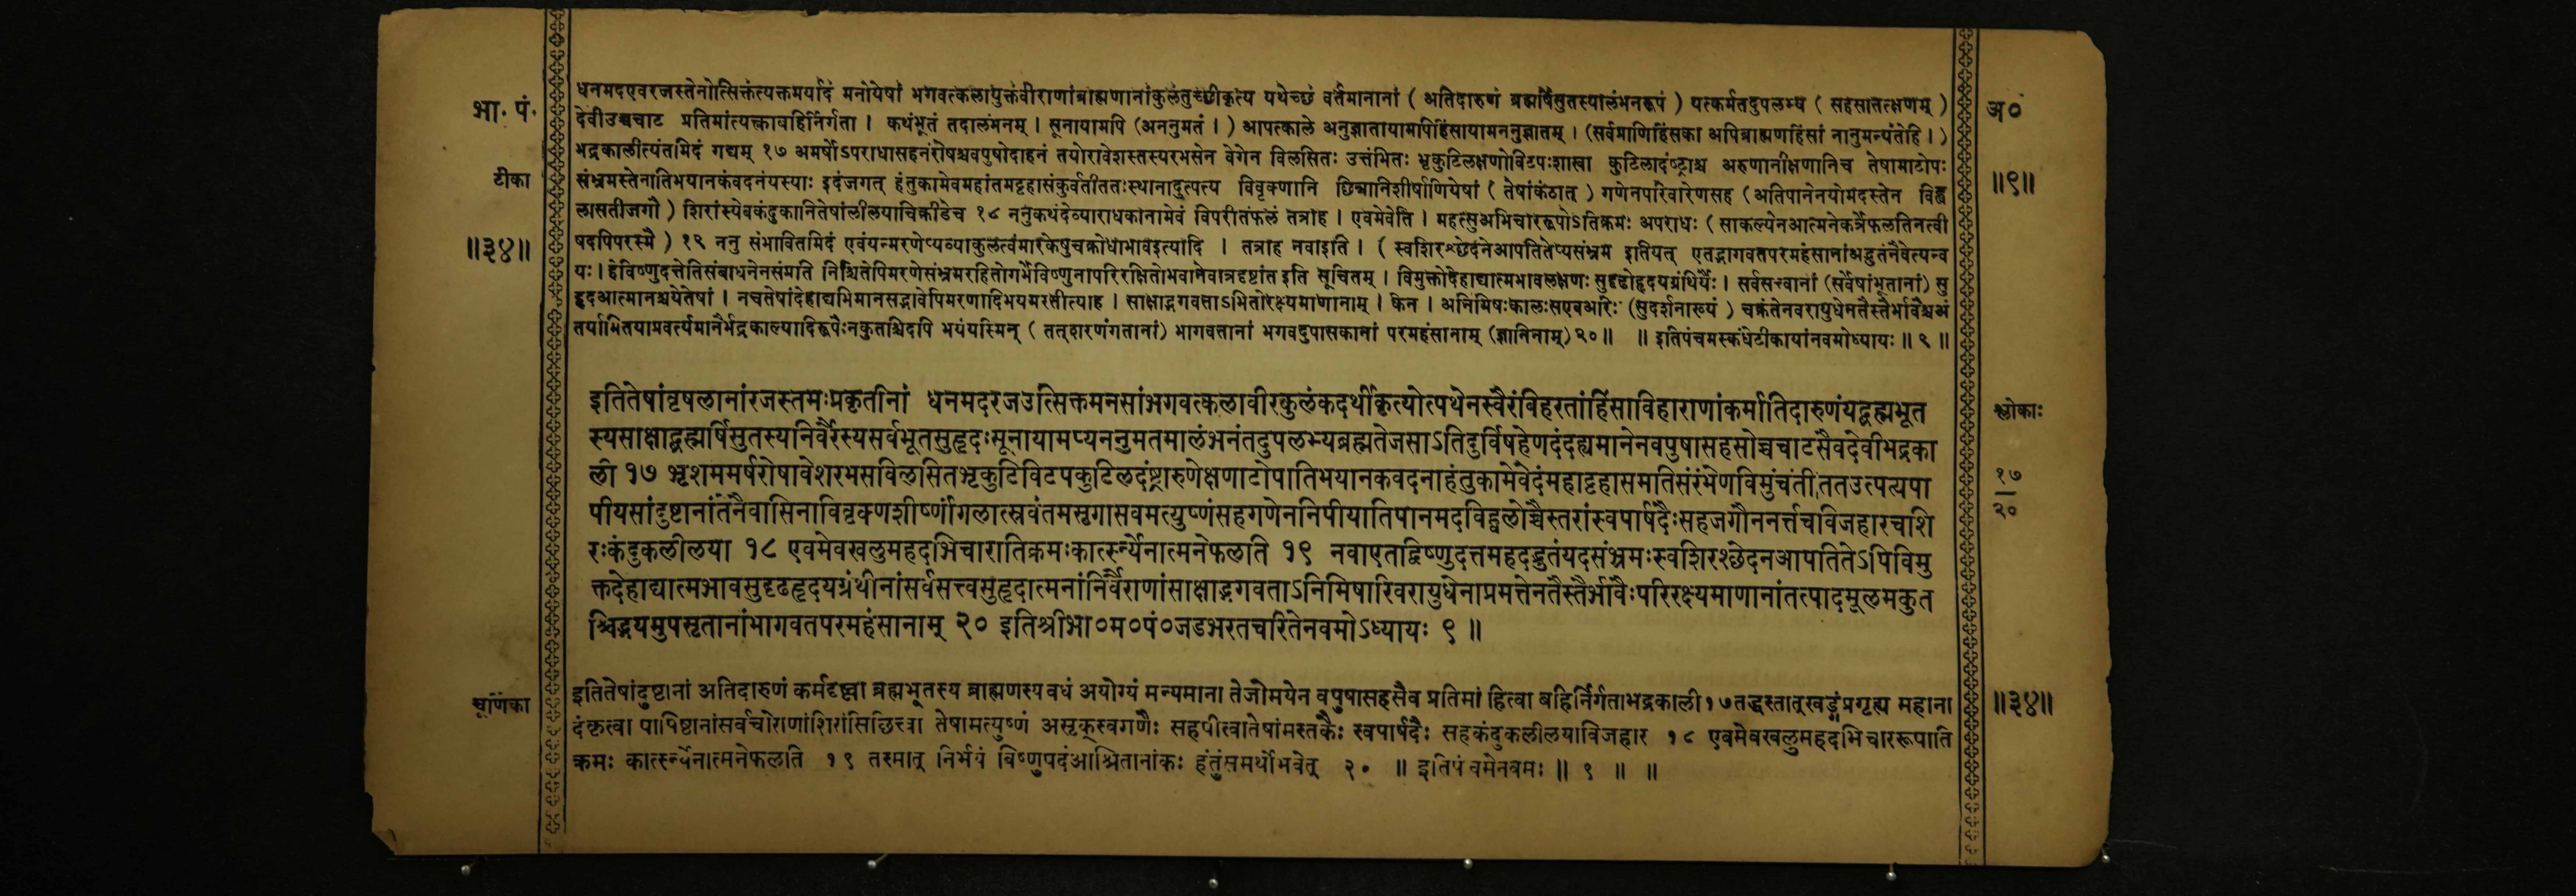 भा. पं.
टीका
॥३४॥
चूर्णिका
धनमदएवरजस्तेनोत्सिक्तंत्यक्तमर्यादं मनोयेषां भगवत्कलायुक्तंवीराणांब्राह्मणानांकुलंतुच्छीकृत्य यथेच्छं वर्तमानानां ( अतिदारुणं ब्रह्मर्षिसुतस्यालंभनरूपं ) यत्कर्मतदुपलभ्य ( सहसातत्क्षणम् )
देवीउच्चचाट प्रतिमांत्यक्त्वाबहिर्निर्गता । कथंभूतं तदालंभनम् । सूनायामपि (अननुमतं । ) आपत्काले अनुज्ञातायामपिहिंसायामननुज्ञातम् । (सर्वप्राणिहिंसका अपिब्राह्मणहिंसां नानुमन्यंतेहि । )
भद्रकालीत्यंतमिदं गद्यम् १७ अमर्षोऽपराधासहनंरोषश्चवपुषोदाहनं तयोरावेशस्तस्यरभसेन वेगेन विलसितः उत्तंभितः भ्रुकुटिलक्षणोविटपःशाखा कुटिलादंष्ट्राश्च अरुणानीक्षणानिच तेषामाटोपः
संभ्रमस्तेनातिभयानकंवदनंयस्याः इदंजगत् हंतुकामेवमहांतमट्टहासंकुर्वतीततःस्थानादुत्पत्य विवृक्णानि छिन्नानिशीर्षाणियेषां ( तेषांकंठात् ) गणेनपरिवारेणसह (अतिपानेनयोमदस्तेन विह्व
लासतीजगौ ) शिरांस्येवकंदुकानितेषांलीलयाचिक्रीडेच १८ ननुकथंदेव्याराधकानामेवं विपरीतंफलं तत्राह । एवमेवेति । महत्सुअभिचाररूपोऽतिक्रमः अपराधः ( साकल्येनआत्मनेकर्त्रेफलतिनत्वी
षदपिपरस्मै ) १९ ननु संभावितमिदं एवंयन्मरणेप्यव्याकुलत्वंमारकेषुचक्रोधाभावइत्यादि । तत्राह नवाइति । ( स्वशिरश्छेदनेआपतितेप्यसंभ्रम इतियत् एतद्भागवतपरमहंसानांअद्भुतंनैवेत्यन्व
यः । हेविष्णुदत्तेतिसंबोधनेनसंमति निश्चितेपिमरणेसंभ्रमरहितोगर्भेविष्णुनापरिरक्षितोभवानेवात्रदृष्टांत इति सूचितम् । विमुक्तोदेहाद्यात्मभावलक्षणः सुदृढोहृदयग्रंथिर्यैः । सर्वसत्त्वानां (सर्वेषांभूतानां) सु
हृदआत्मानश्चयेतेषां । नचतेषांदेहाद्यभिमानसद्भावेपिमरणादिभयमस्तीत्याह । साक्षाद्भगवताऽभितोरक्ष्यमाणानाम् । केन । अनिमिषःकालःसएवअरिः (सुदर्शनाख्यं ) चक्रंतेनवरायुधेनतैस्तैर्भावैश्चअं
तर्यामितयाप्रवर्त्यमानैर्भद्रकाल्यादिरूपैःनकुतश्चिदपि भयंयस्मिन् ( तत्शरणंगतानां) भागवतानां भगवदुपासकानां परमहंसानाम् (ज्ञानिनाम्) २० ॥ ॥ इतिपंचमस्कंधेटीकायांनवमोध्यायः ॥ ९ ॥
इतितेषांवृषलानांरजस्तमःप्रकृतीनां धनमदरजउत्सिक्तमनसांभगवत्कलावीरकुलंकदर्थीकृत्योत्पथेनस्वैरंविहरतांहिंसाविहाराणांकर्मातिदारुणंयद्ब्रह्मभूत
स्यसाक्षाद्ब्रह्मर्षिसुतस्यनिर्वैरस्यसर्वभूतसुहृदःसूनायामप्यननुमतमालंभनंतदुपलभ्यब्रह्मतेजसाऽतिदुर्विषहेणदंदह्यमानेनवपुषासहसोच्चचाटसैवदेवीभद्रका
ली १७ भृशममर्षरोषावेशरभसविलसितभ्रुकुटिविटपकुटिलदंष्ट्रारुणेक्षणाटोपातिभयानकवदनाहंतुकामेवेदंमहाट्टहासमतिसंरंभेणविमुंचंतीततउत्पत्यपा
पीयसांदुष्टानांतेनैवासिनाविवृक्णशीर्ष्णांगलात्स्रवंतमसृगासवमत्युष्णंसहगणेननिपीयातिपानमदविह्वलोच्चैस्तरांस्वपार्षदैःसहजगौननर्त्तचविजहारचशि
रःकंदुकलीलया १८ एवमेवखलुमहदभिचारातिक्रमःकार्त्स्न्येनात्मनेफलति १९ नवाएतद्विष्णुदत्तमहदद्भुतंयदसंभ्रमःस्वशिरश्छेदनआपतितेऽपिविमु
क्तदेहाद्यात्मभावसुदृढहृदयग्रंथीनांसर्वसत्त्वसुहृदात्मनांनिर्वैराणांसाक्षाद्भगवताऽनिमिषारिवरायुधेनाप्रमत्तेनतैस्तैर्भावैःपरिरक्ष्यमाणानांतत्पादमूलमकुत
श्चिद्भयमुपसृतानांभागवतपरमहंसानाम् २० इतिश्रीभा०म०पं०जडभरतचरितेनवमोऽध्यायः ९ ॥
इतितेषांदुष्टानां अतिदारुणं कर्मदृष्ट्वा ब्रह्मभूतस्य ब्राह्मणस्यवधं अयोग्यं मन्यमाना तेजोमयेन वपुषासहसैव प्रतिमां हित्वा बहिर्निर्गताभद्रकाली१७तद्धस्तात्खड्गंप्रगृह्य महाना
दंकृत्वा पापिष्टानांसर्वचोराणांशिरांसिछित्त्वा तेषामत्युष्णं असृक्स्वगणैः सहपीत्वातेषांमस्तकैः स्वपार्षदैः सहकंदुकलीलयाविजहार १८ एवमेवखलुमहदभिचाररूपाति
क्रमः कार्त्स्न्येनात्मनेफलति १९ तस्मात् निर्भयं विष्णुपदंआश्रितानांकः हंतुंसमर्थोभवेत् २० ॥ इतिपंचमेनवमः ॥ ९ ॥ ॥
अ०
॥९॥
श्लोकाः
१७
२०
॥३४॥